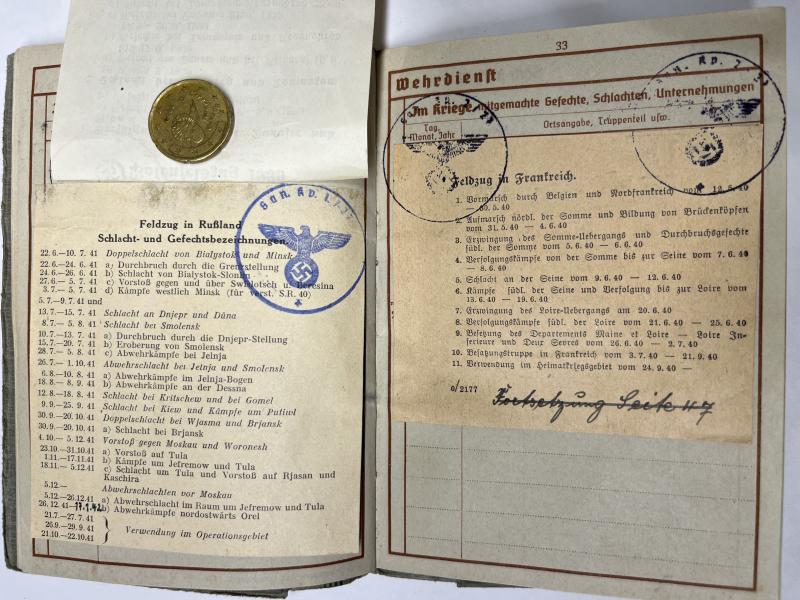 Feldzug in Rußland
Schlacht- und Gefechtsbezeichnungen
22.6.—10.7. 41 Doppelschlacht von Bialystok und Minsk
22.6.—24.6. 41 a) Durchbruch durch die Grenzstellung
24.6.—26.6. 41 b) Schlacht von Bialystok-Slonim
27.6.— 5.7. 41 c) Vorstoß gegen und über Swislotsch u. Beresina
3.7.— 5.7. 41 d) Kämpfe westlich Minsk (für verst. S.R. 40)
5.7.—9.7. 41 und
13.7.—15.7. 41 Schlacht an Dnjepr und Düna
8.7.— 5.8. 41 Schlacht bei Smolensk
10.7.—13.7. 41 a) Durchbruch durch die Dnjepr-Stellung
15.7.—20.7. 41 b) Eroberung von Smolensk
28.7.— 5.8. 41 c) Abwehrkämpfe bei Jelnja
26.7.— 1.10. 41 Abwehrschlacht bei Jelnja und Smolensk
6.8.—10.8. 41 a) Abwehrkämpfe im Jelnja-Bogen
18.8.— 8.9. 41 b) Abwehrkämpfe an der Dessna
12.8.—18.8. 41 Schlacht bei Kritschew und bei Gomel
9.9.—25.9. 41 Schlacht bei Kiew und Kämpfe um Putiwl
30.9.—20.10. 41 Doppelschlacht bei Wjasma und Brjansk
30.9.—20.10. 41 a) Schlacht bei Brjansk
4.10.— 5.12. 41 Vorstoß gegen Moskau und Woronesh
23.10.—31.10.41 a) Vorstoß auf Tula
1.11.—17.11.41 b) Kämpfe um Jefremow und Tula
18.11.— 5.12.41 c) Schlacht um Tula und Vorstoß auf Rjasan und
Kaschira
5.12.— Abwehrschlachten vor Moskau
5.12.—26.12.41 a) Abwehrschlacht im Raum um Jefremow und Tula
26.12.41— 17.1.42 b) Abwehrkämpfe nordostwärts Orel
21.7.—27.7. 41
26.9.—29.9. 41 } Verwendung im Operationsgebiet
21.10.—22.10.41
33
Wehrdienst
Im Kriege mitgemachte Gefechte, Schlachten, Unternehmungen
Tag, Ortsangabe, Truppenteil usw.
Monat, Jahr
Feldzug in Frankreich.
1. Vormarsch durch Belgien und Nordfrankreich vom 12.5.40
— 30.5.40
2. Aufmarsch nördl. der Somme und Bildung von Brückenköpfen
vom 31.5.40 — 4.6.40
3. Erzwingung des Somme-Uebergangs und Durchbruchsgefechte
südl. der Somme vom 5.6.40 — 6.6.40
4. Verfolgungskämpfe von der Somme bis zur Seine vom 7.6.40
— 8.6.40
5. Schlacht an der Seine vom 9.6.40 — 12.6.40
6. Kämpfe südl. der Seine und Verfolgung bis zur Loire vom
13.6.40 — 19.6.40
7. Erzwingung des Loire-Uebergangs am 20.6.40
8. Verfolgungskämpfe südl. der Loire vom 21.6.40 — 25.6.40
9. Besetzung des Departements Maine et Loire — Loire In-
ferieure und Deux Sevres vom 26.6.40 — 2.7.40
10. Besatzungstruppe in Frankreich vom 3.7.40 — 21.9.40
11. Verwendung im Heimatkriegsgebiet vom 24.9.40 —
0/2177
Fortsetzung Seite 47